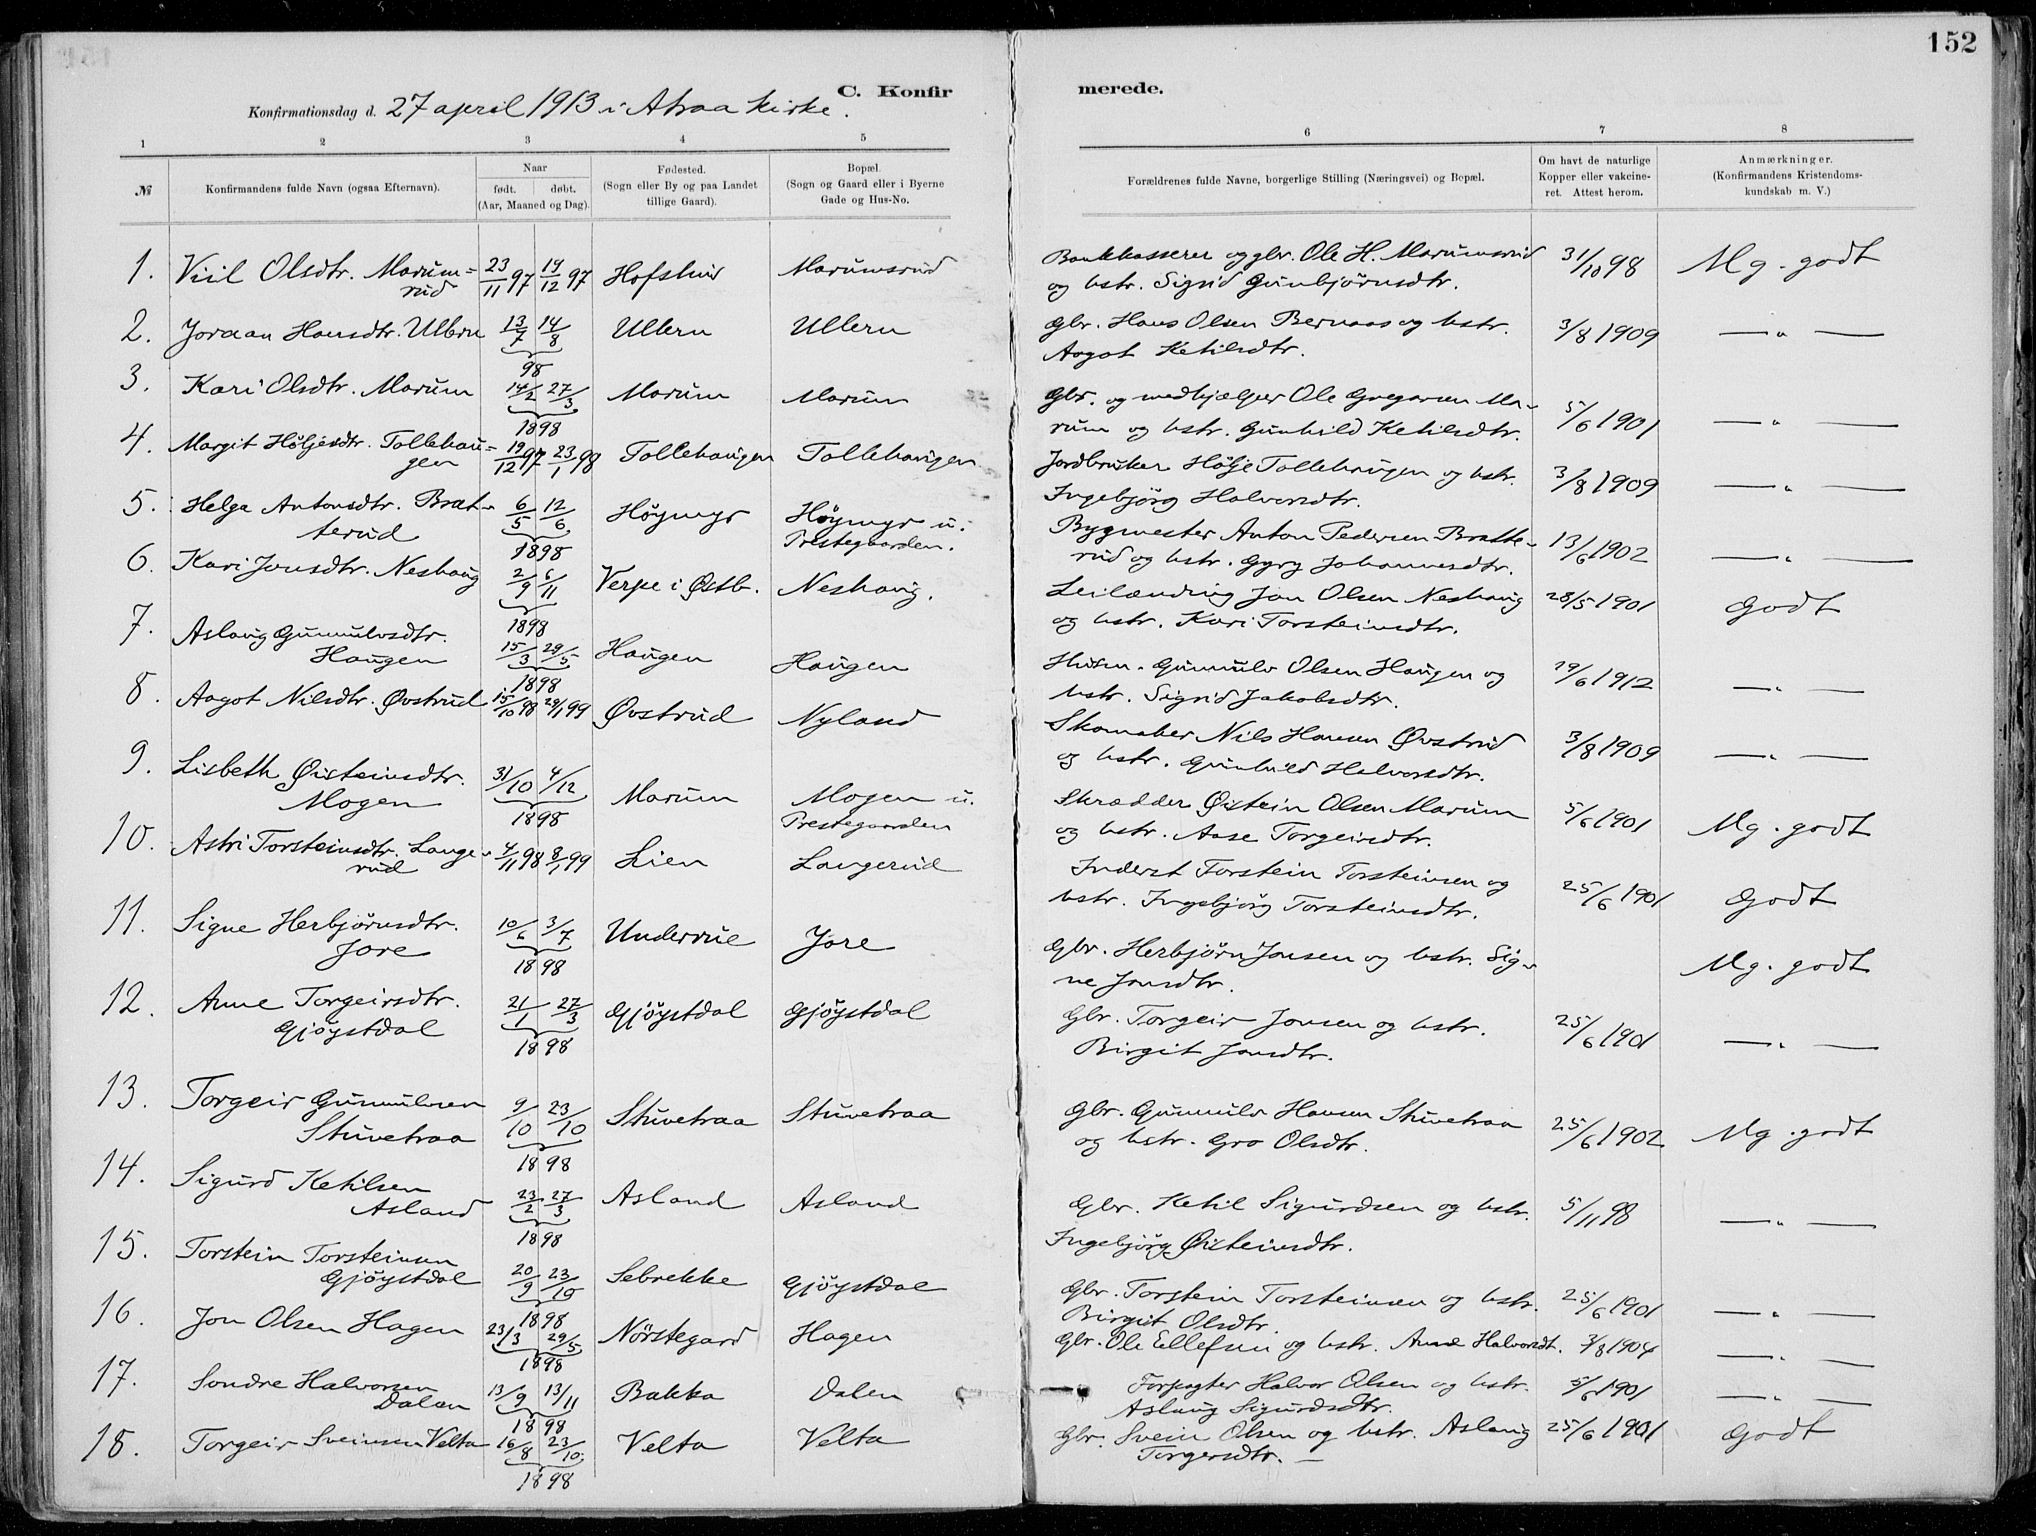 152
C. Konfirmerede.
Konfirmationsdag d. 27 april 1913 i Atraa kirke.
1 2 3 4 5 6 7 8
№ Konfirmandens fulde Navn (ogsaa Efternavn). Naar født. døbt. (Aar, Maaned og Dag). Fødested. (Sogn eller By og paa Landet tillige Gaard). Bopæl. (Sogn og Gaard eller i Byerne Gade og Hus-No. Forældrenes fulde Navne, borgerlige Stilling (Næringsvei) og Bopæl. Om havt de naturlige Kopper eller vakcineret. Attest herom. Anmærkninger. (Konfirmandens Kristendomskundskab m. V.)
1. Viil Olsdtr. Marum= 23/11 97 19/12 97 Marumsrud Bankkasserer og gbr. Ole H. Marumsrud 31/10 98 Mg. godt
rud og hstr. Sigrid Gunbjørnsdtr.
2. Joraan Hansdtr. Ullern 13/7 14/8 98 Ullern Ullern Gbr. Hans Olsen Bernaas og hstr. 3/8 1909 — „ —
Aagot Ketilsdtr.
3. Kari Olsdtr. Marum 14/2 27/3 1898 Marum Marum Gbr. og medhjælper Ole Gregarsen Ma- 5/6 1901 — „ —
rum og hstr. Gunhild Ketilsdtr.
4. Margit Höljesdtr. Tollehau= 19/12 97 23/1 98 Tollehaugen Tollehaugen Jordbruker Hölje Tollehaugen og hstr. 3/8 1909 — „ —
gen Ingebjörg Halvorsdtr.
5. Helga Antonsdtr. Brat- 6/5 12/6 1898 Höymyr Höymyr u. Bygmester Anton Pedersen Bratte- 13/6 1902 — „ —
terud Prestegaarden. rud og hstr. Gyry Johannesdtr.
6. Kari Jonsdtr. Neshaug 2/9 6/11 1898 Verpe i Østb. Neshaug. Leilænding Jon Olsen Neshaug 28/5 1901 Godt
og hstr. Kari Torsteinsdtr.
7. Aslaug Gunnulvsdtr. 15/3 29/5 1898 Haugen Haugen Husm. Gunnulv Olsen Haugen og 29/6 1912 — „ —
Haugen hstr. Sigrid Jakobsdtr.
8. Aagot Nilsdtr. Øvstrud 15/10 98 29/1 99 Øvstrud Nyland Skomaker Nils Hansen Øvstrud 3/8 1909 — „ —
og hstr. Gunhild Halvorsdtr.
9. Lisbeth Øisteinsdtr. 31/10 4/12 1898 Marum Mogen u. Skrædder Øistein Olsen Marum 5/6 1901 Mg. godt
Mogen Prestegaarden og hstr. Aase Torgeirsdtr.
10. Astri Torsteinsdtr. Lange- 4/11 98 8/1 99 Lien Langerud Inderst Torstein Torsteinsen og 25/6 1901 Godt
rud hstr. Ingebjörg Torsteinsdtr.
11. Signe Herbjørnsdtr. 10/6 3/7 1898 Underrue Jore Gbr. Herbjørn Jonsen og hstr. Sig- Mg. godt
Jore ne Jonsdtr.
12. Anne Torgeirsdtr. 21/1 27/3 1898 Gjöystdal Gjöystdal Gbr. Torgeir Jonsen og hstr. 25/6 1901 — „ —
Gjöystdal Birgit Jonsdtr.
13. Torgeir Gunnulvsen 9/10 23/10 1898 Stuvetraa Stuvetraa Gbr. Gunnulv Hansen Stuvetraa 25/6 1902 Mg. godt
Stuvetraa og hstr. Gro Olsdtr.
14. Sigurd Ketilsen 23/2 27/3 1898 Asland Asland Gbr. Ketil Sigurdsen og hstr. 5/11 98 — „ —
Asland Ingebjörg Øisteinsdtr.
15. Torstein Torsteinsen 20/9 23/10 1898 Sebrekke Gjöystdal Gbr. Torstein Torsteinsen og hstr. 25/6 1901 — „ —
Gjöystdal Birgit Olsdtr.
16. Jon Olsen Hagen 23/3 29/5 1898 Nörstegard Hagen Gbr. Ole Ellefsen og hstr. Anne Halvorsdt. 3/8 1904 — „ —
17. Sondre Halvorsen 13/9 13/11 1898 Bakka Dalen Forpagter Halvor Olsen og hstr. 5/6 1901 — „ —
Dalen Aslaug Sigurdsdtr.
18. Torgeir Sveinsen Velta 16/8 23/10 1898 Velta Velta Gbr. Svein Olsen og hstr. Aslaug 25/6 1901 Godt
Torgersdtr. —